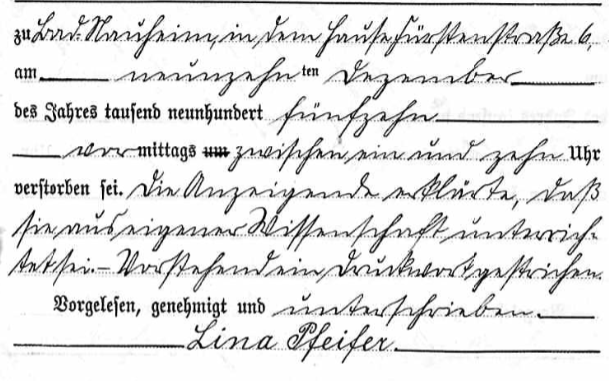 zu Bad-Nauheim, in dem Hause Fürstenstraße 6,
am neunzehn ten Dezember
des Jahres tausend neunhundert fünfzehn
vormittags um zwischen ein und zehn Uhr
verstorben sei. Die Anzeigende erklärte, daß
sie aus eigener Wissenschaft unterrich-
tet sei. – Vorstehend ein Druckwort gestrichen.
Vorgelesen, genehmigt und unterschrieben.
Lina Pfeifer.